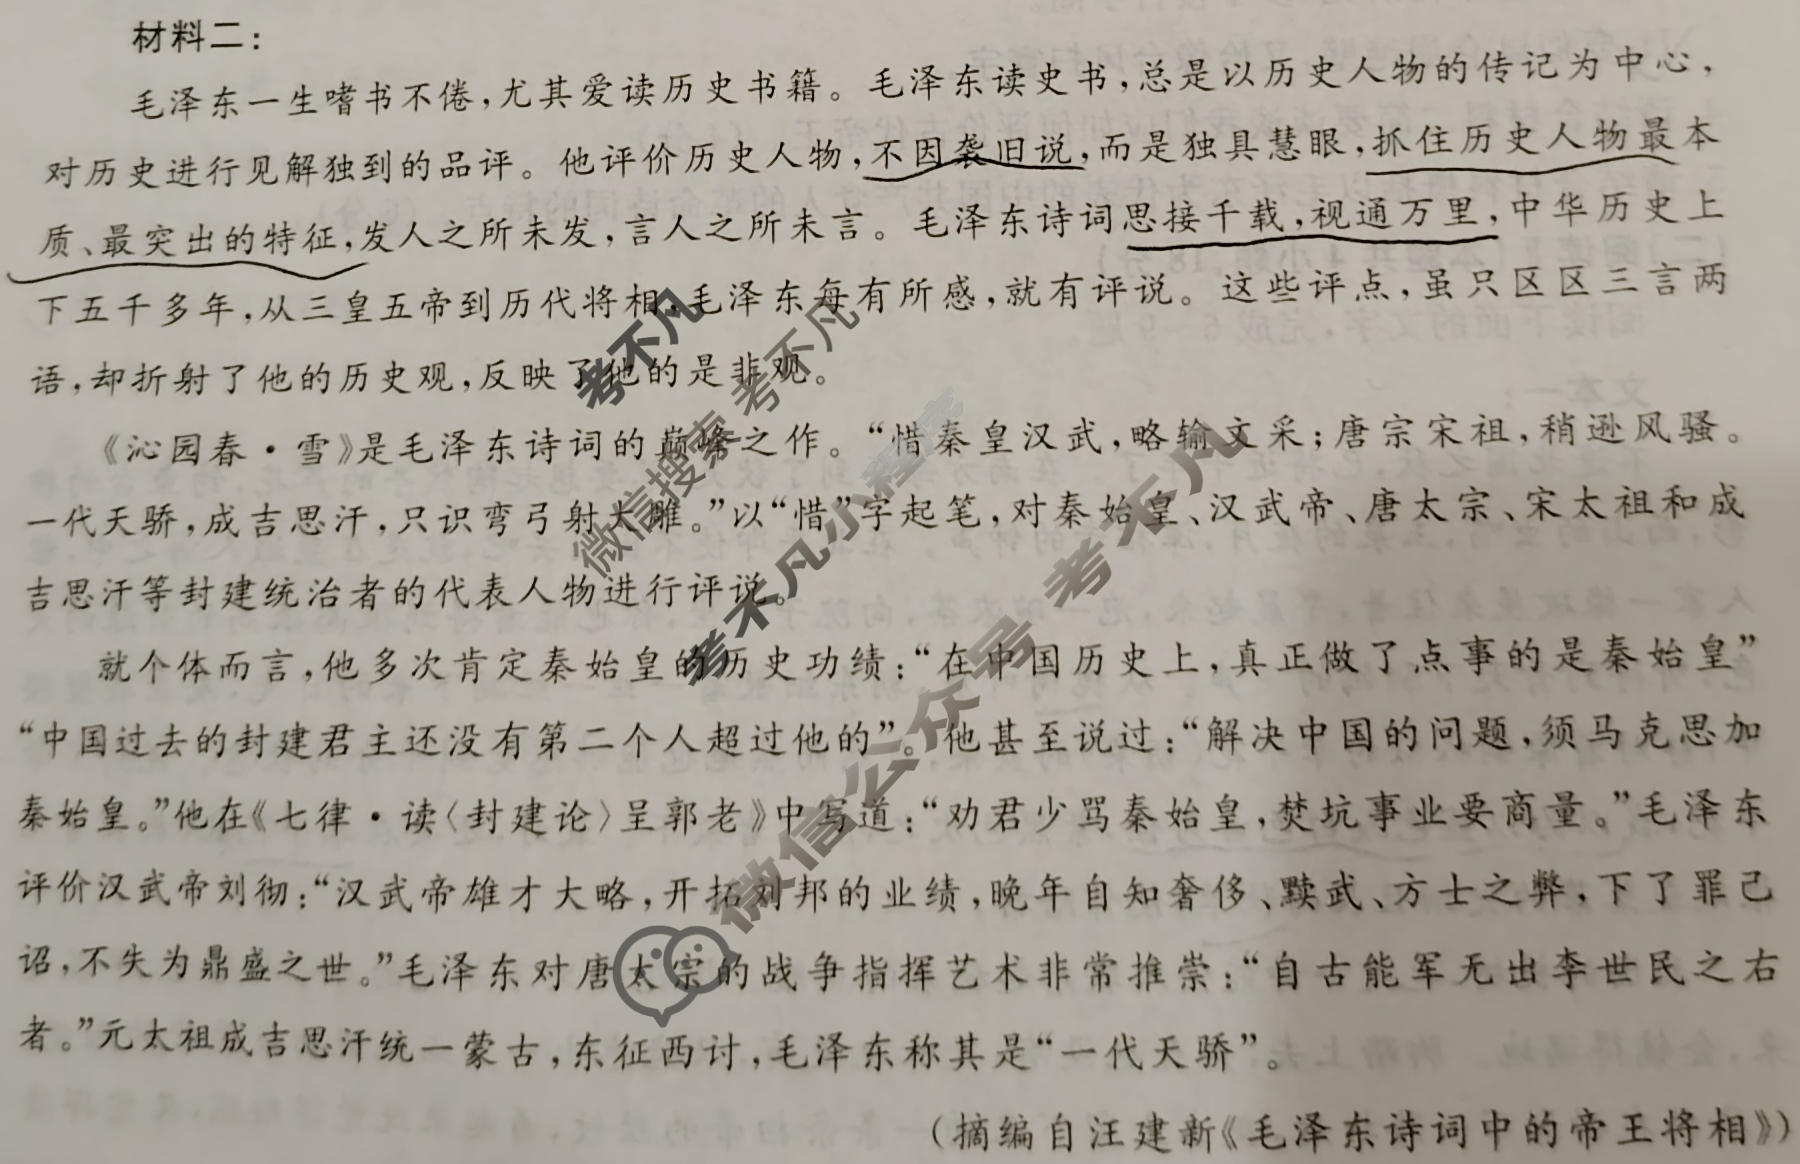 材料二：
毛泽东一生嗜书不倦，尤其爱读历史书籍。毛泽东读史书，总是以历史人物的传记为中心，
对历史进行见解独到的品评。他评价历史人物，不因袭旧说，而是独具慧眼，抓住历史人物最本
质、最突出的特征，发人之所未发，言人之所未言。毛泽东诗词思接千载，视通万里，中华历史上
下五千多年，从三皇五帝到历代将相，毛泽东每有所感，就有评说。这些评点，虽只区区三言两
语，却折射了他的历史观，反映了他的是非观。
《沁园春·雪》是毛泽东诗词的巅峰之作。“惜秦皇汉武，略输文采；唐宗宋祖，稍逊风骚。
一代天骄，成吉思汗，只识弯弓射大雕。”以“惜”字起笔，对秦始皇、汉武帝、唐太宗、宋太祖和成
吉思汗等封建统治者的代表人物进行评说。
就个体而言，他多次肯定秦始皇的历史功绩：“在中国历史上，真正做了点事的是秦始皇”
“中国过去的封建君主还没有第二个人超过他的”。他甚至说过：“解决中国的问题，须马克思加
秦始皇。”他在《七律·读〈封建论〉呈郭老》中写道：“劝君少骂秦始皇，焚坑事业要商量。”毛泽东
评价汉武帝刘彻：“汉武帝雄才大略，开拓刘邦的业绩，晚年自知奢侈、黩武、方士之弊，下了罪己
诏，不失为鼎盛之世。”毛泽东对唐太宗的战争指挥艺术非常推崇：“自古能军无出李世民之右
者。”元太祖成吉思汗统一蒙古，东征西讨，毛泽东称其是“一代天骄”。
（摘编自汪建新《毛泽东诗词中的帝王将相》）
考不凡
微信搜索 考不凡
考不凡小程序
微信公众号 考不凡